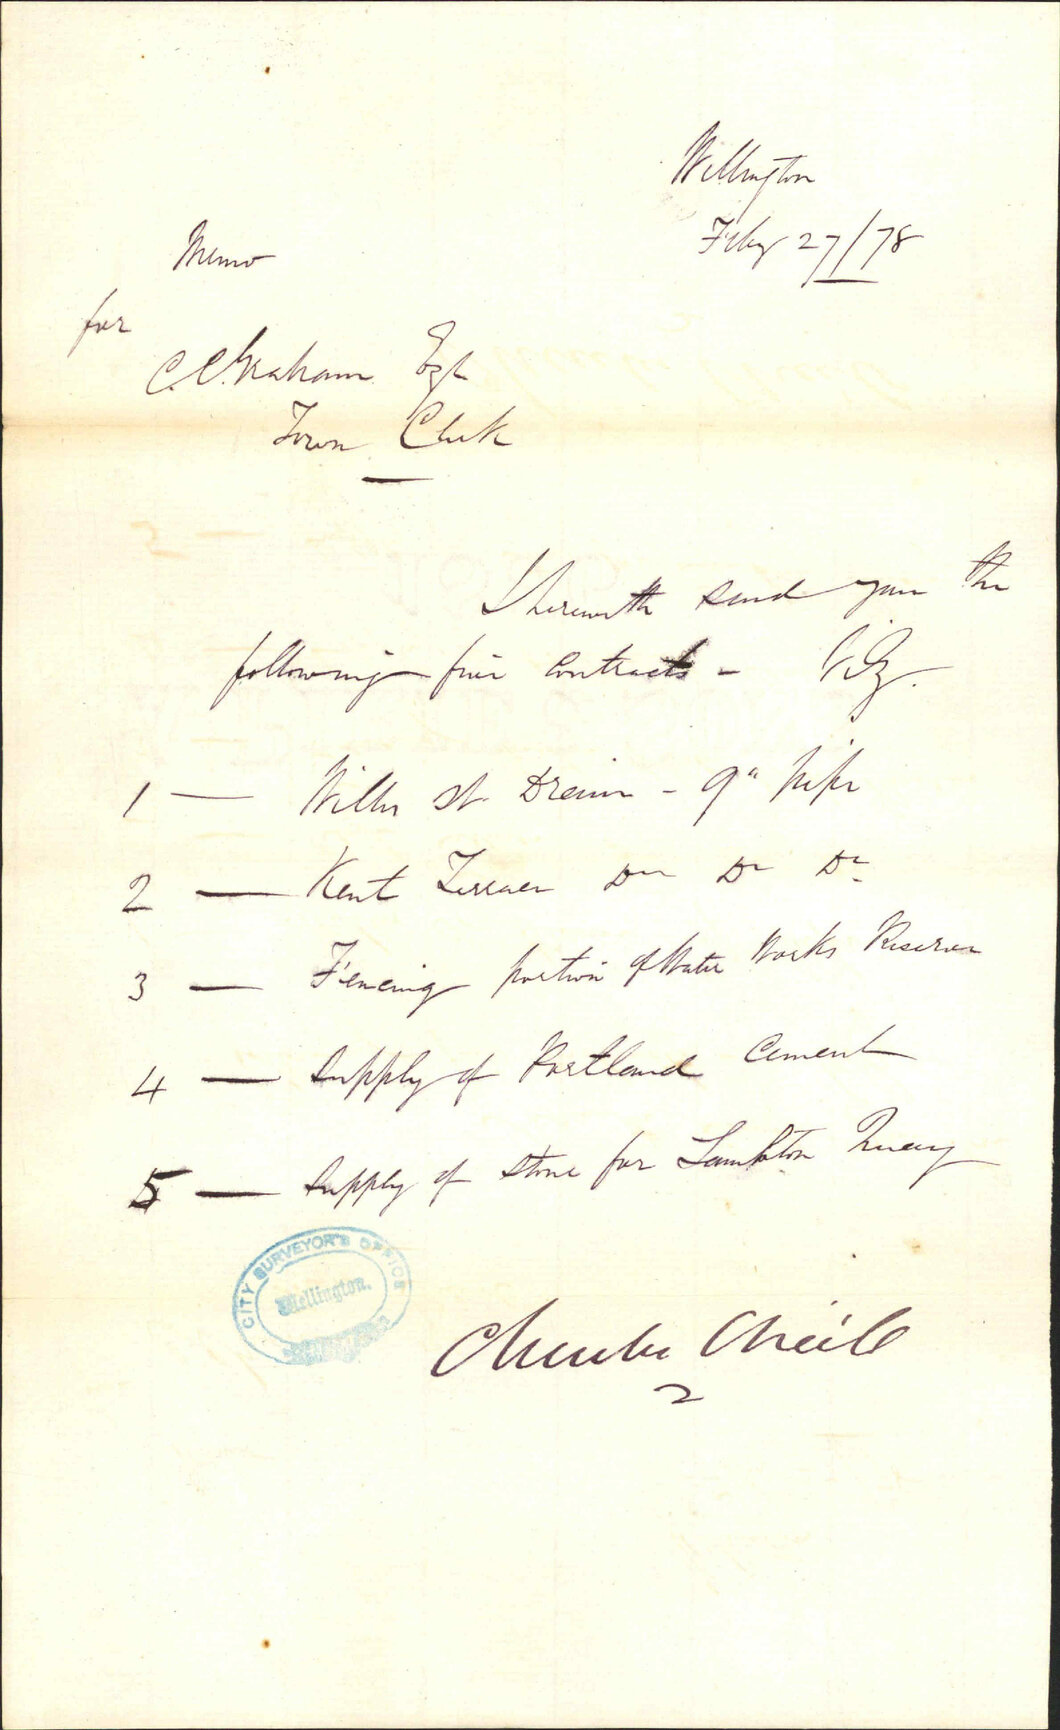 Wellington
Feby 27/78
Memo
for
C.C. Graham Esqr
Town Clerk
I herewith send you the
following five Contracts - Viz.
1 — Willis St. Drain - 9" pipe
2 — Kent Terrace Do Do Do
3 — Fencing portion of Water Works Reserve
4 — Supply of Portland Cement
5 — Supply of Stone for Lambton Quay
CITY SURVEYOR'S OFFICE
Wellington.